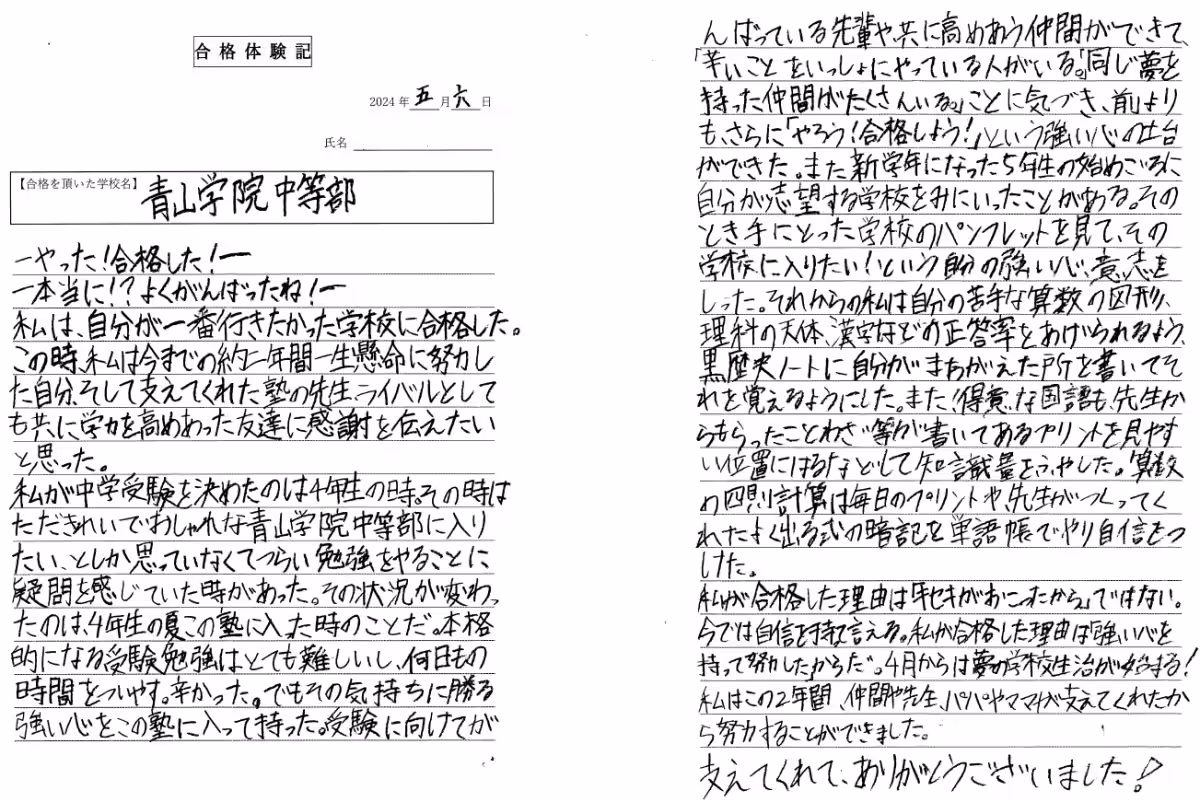 合格体験記
2024年五月六日
氏名
【合格を頂いた学校名】青山学院中等部
ーやった！合格した！ー
ー本当に！？よくがんばったね！ー
私は、自分が一番行きたかった学校に合格した。
この時、私は今までの約二年間一生懸命に努力し
た自分、そして支えてくれた塾の先生、ライバルとして
も共に学力を高めあった友達に感謝を伝えたい
と思った。
私が中学受験を決めたのは4年生の時。その時は
ただきれいでおしゃれな青山学院中等部に入り
たい、としか思っていなくてつらい勉強をやることに
疑問を感じていた時があった。その状況が変わっ
たのは、4年生の夏この塾に入った時のことだ。本格
的になる受験勉強はとても難しいし、何日もの
時間をついやす。辛かった。でもその気持ちに勝る
強い心をこの塾に入って持った。受験に向けてが
んばっている先輩や共に高めあう仲間ができて、
「辛いことをいっしょにやっている人がいる。」「同じ夢を
持った仲間がたくさんいる。」ことに気づき、前より
も、さらに「やろう！合格しよう！」という強い心の土台
ができた。また新学年になった5年生の始めごろに
自分が志望する学校をみにいったことがある。その
とき手にとった学校のパンフレットを見て、その
学校に入りたい！という自分の強い心、意志を
しった。それからの私は自分の苦手な算数の図形、
理科の天体、漢字などの正答率をあげられるよう、
黒歴史ノートに自分がまちがえた所を書いてそ
れを覚えるようにした。また、得意な国語も、先生か
らもらったことわざ等が書いてあるプリントを見やす
い位置にはるなどして知識量をふやした。算数
の四則計算は毎日のプリントや、先生がつくってく
れたよく出る式の暗記を単語帳でやり自信をつ
けた。
私が合格した理由は「キセキがおこったから」ではない。
今では自信を持て言える。私が合格した理由は「強い心を
持って努力した」からだ。4月からは夢の学校生活が始まる！
私はこの2年間、仲間や先生、パパやママが支えてくれたか
ら努力することができました。
支えてくれて、ありがとうございました！